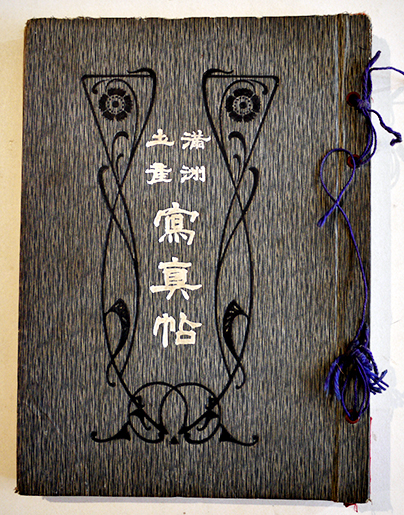 滿洲
土產
寫真帖